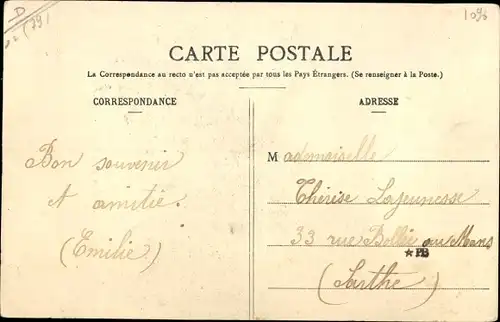 D
(29)
1096
CARTE POSTALE
La Correspondance au recto n'est pas acceptée par tous les Pays Étrangers. (Se renseigner à la Poste.)
CORRESPONDANCE
ADRESSE
Bon souvenir
et amitié.
(Emilie)
Mademoiselle
Thérèse Lajeunesse
33 rue Bollée au Mans
★PB
(Sarthe)